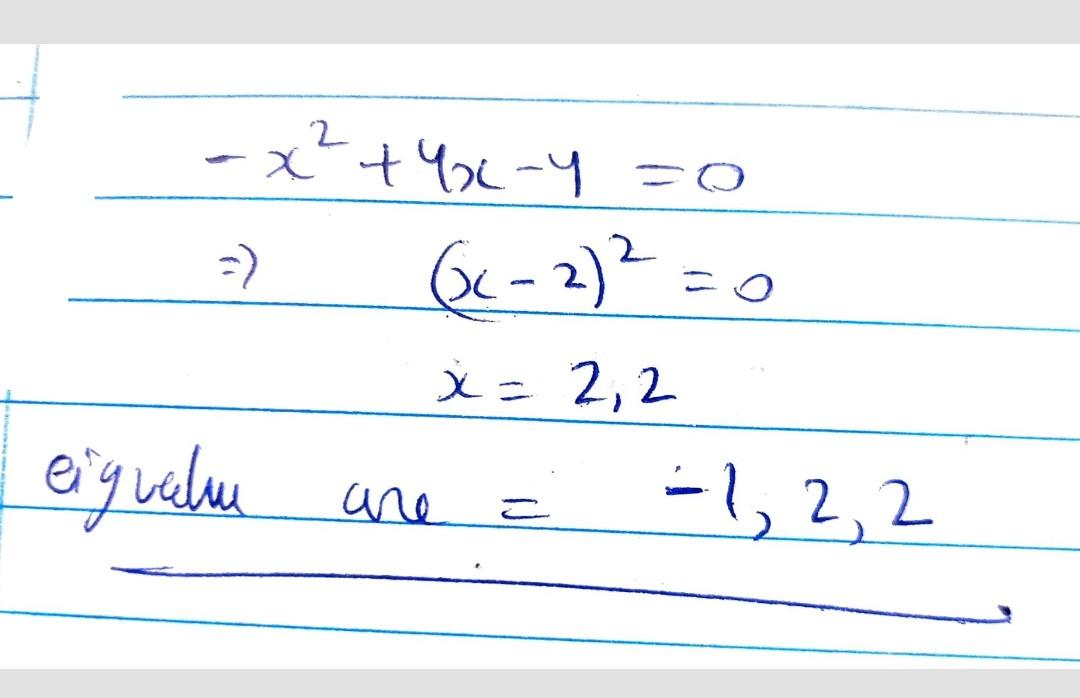 -x² + 4x - 4 = 0
=> (x - 2)² = 0
x = 2, 2
eigvalu are = -1, 2, 2